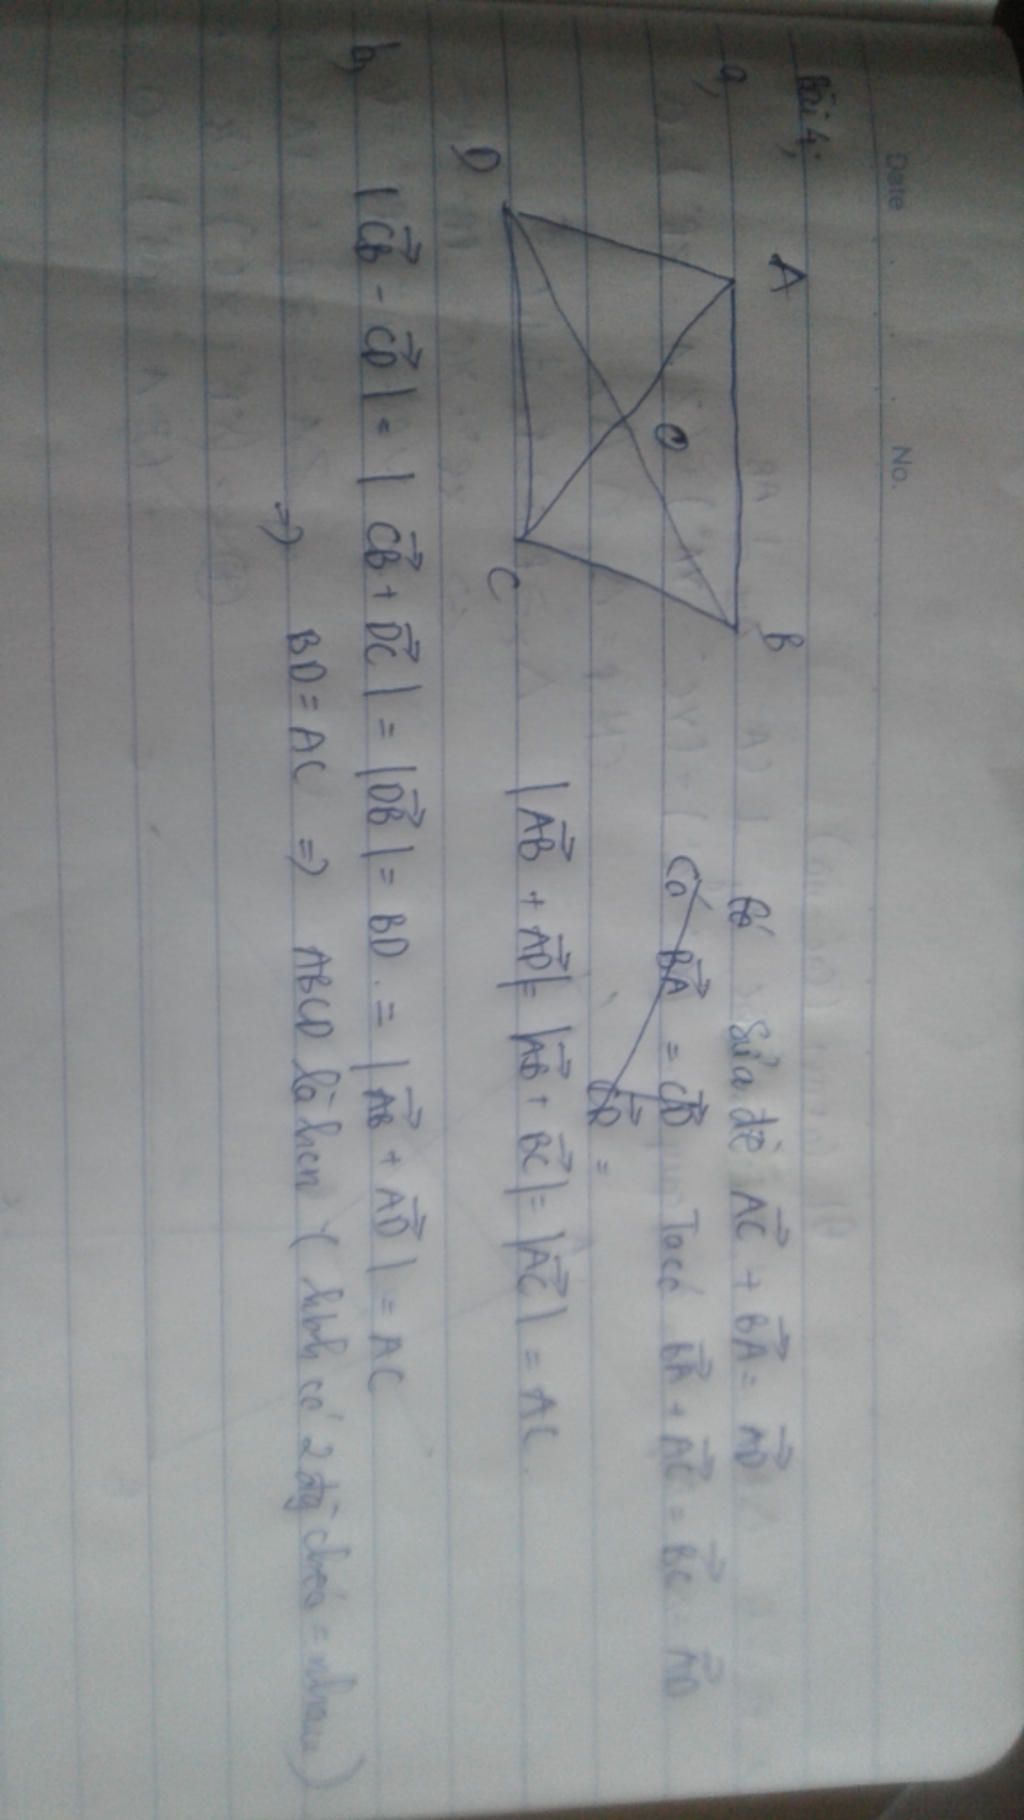 Date No.
Bài 4;
a, A B
Có Sửa đề AC + BA = AD
Có BA = CD Ta có BA + AC = BC = AD
O
CB =
D C |AB + AD| = |AB + BC| = |AC| = AC.
b, |CB - CD| = |CB + DC| = |DB| = BD. = |AB + AD| = AC
=> BD = AC => ABCD là hcn (hbh có 2 đg chéo = nhau)